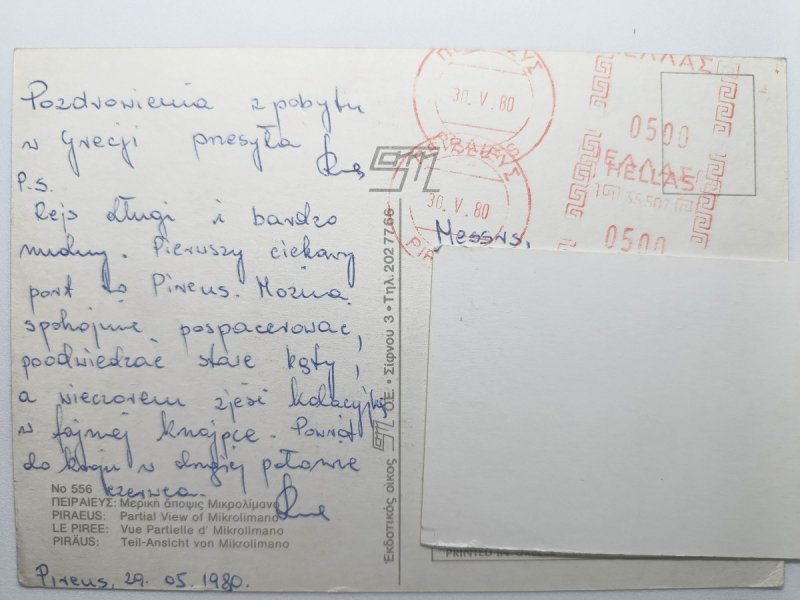 Pozdrowienia z pobytu
w Grecji przesyła
P.S.
Rejs długi i bardzo
nudny. Pierwszy ciekawy
port to Pireus. Można
spokojnie pospacerować,
poodwiedzać stare kąty,
a wieczorem zjeść kolacyjkę
w fajnej knajpce. Powrót
do kraju w drugiej połowie
czerwca.
No 556
ΠΕΙΡΑΙΕΥΣ: Μερική άποψις Μικρολίμανο
PIRAEUS: Partial View of Mikrolimano
LE PIREE: Vue Partielle d' Mikrolimano
PIRÄUS: Teil-Ansicht von Mikrolimano
Pireus, 29. 05. 1980.
Ἐκδοτικός οἶκος ΟΕ • Σίφνου 3 • Τηλ. 202 77 66
30. V. 80
ΠΕΙΡΑΙΕΥΣ
30. V. 80
ΕΛΛΑΣ
0500
ΕΛΛΑΣ
HELLAS
0500
Messrs.
PRINTED IN